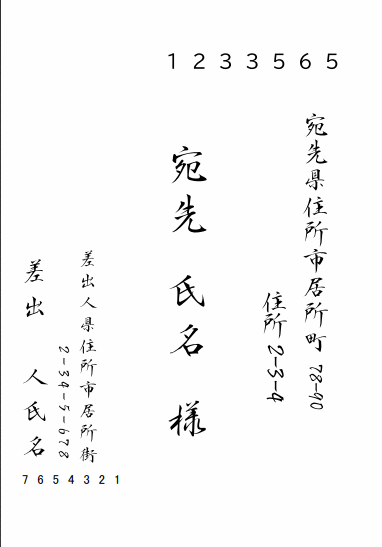 1233565
宛先県住所市居所町 78-90
住所 2-3-4
宛先 氏名 様
差出人県住所市居所街
2-34-5-678
差出 人氏名
7654321